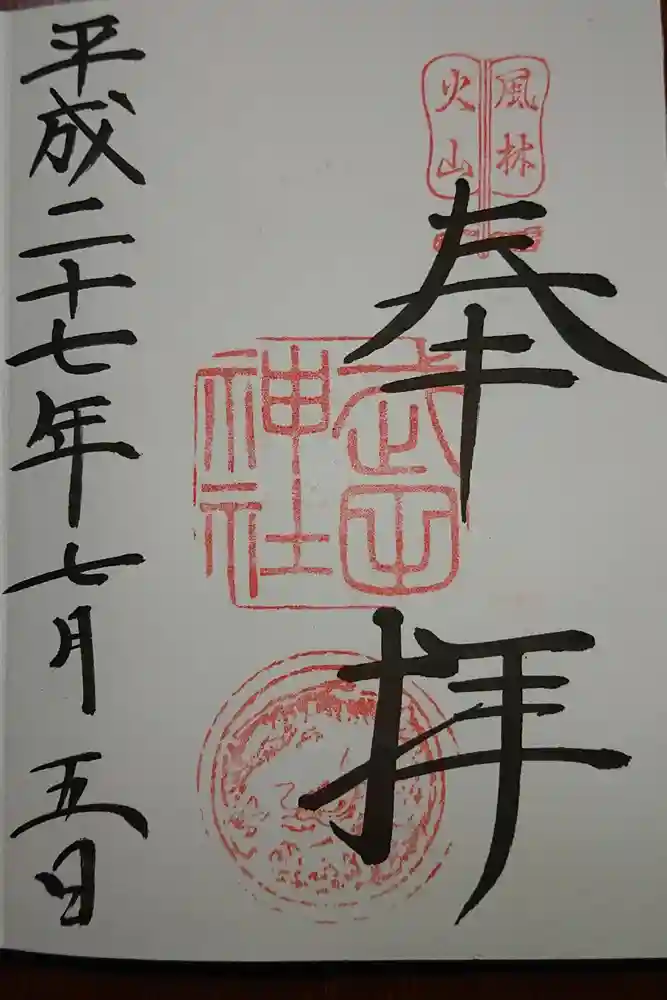 風林
火山
奉拝
武田
神社
平成二十七年七月五日